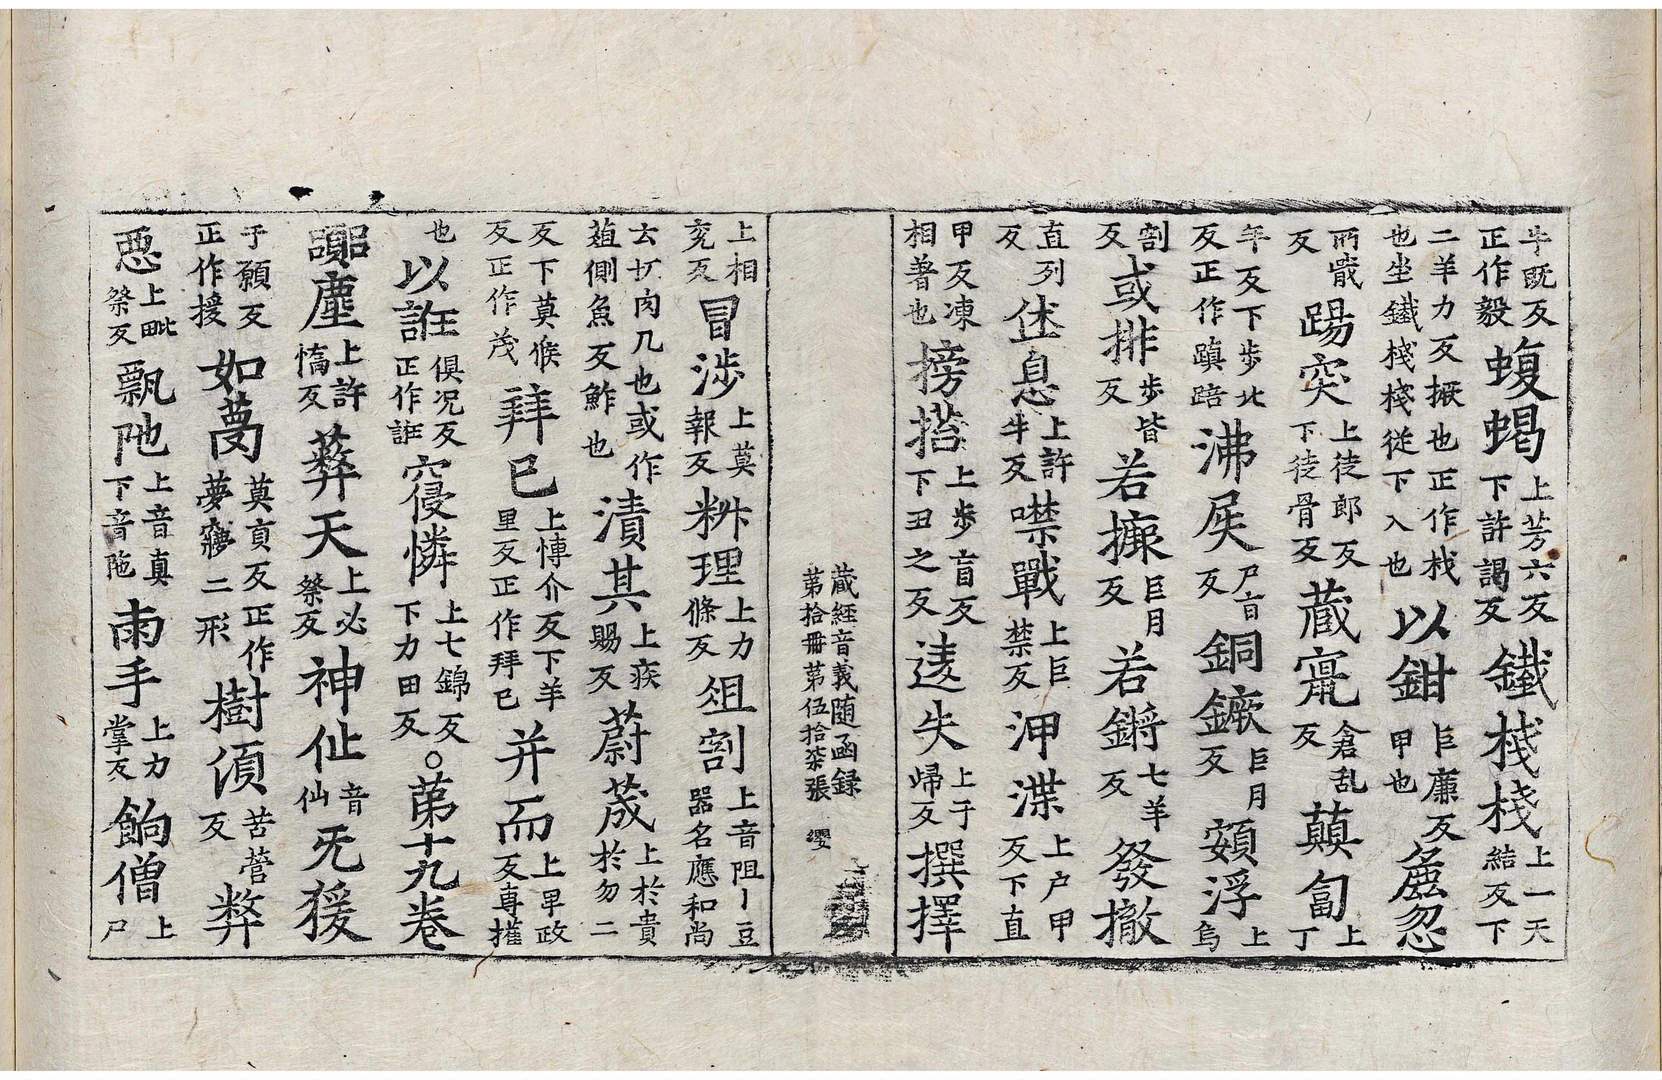 牛既反正作毅蝮蝎上芳六反下許謁反鐵棧棧上一天結反下
二羊力反撅也正作栈也坐鐵棧棧從下入也以鉗巨廉反甲也麁忽
所嵗反踼突上徒郎反下徒骨反蔵竄倉乱反蔂匐上丁
年反下步北反正作蹎踣沸屎尸旨反銅鐝巨月反頞浮上烏
割反或排步皆反若㯕巨月反若鏘七羊反發撤
直列反㤇息上許牛反噤戰上巨禁反渮渫上户甲反下直
甲反凍相著也搒笞上步盲反下丑之反違失上于歸反撰擇
蔵經音義随函録
第拾冊第伍拾柒張 纓
上相兖反冒涉上莫報反粆理上力條反俎割上音阻丨豆器名應和尚
云㧉肉几也或作蒩側魚反鮓也漬其上疾賜反蔚荿上於貴於勿二
反下莫候反正作茂拜已上愽介反下羊里反正作拜已并而上早政反專㩲
也以誑俱况反正作誑寑憐上七錦反下力田反○第十九卷
嚻塵上許憍反蔾天上必祭反神仚音仙旡猨
于願反正作援如蔓莫亱反正作夢㝱二形樹湏苦菅反弊
惡上毗祭反甎阤上音真下音陁兩手上力掌反餉僧上尸